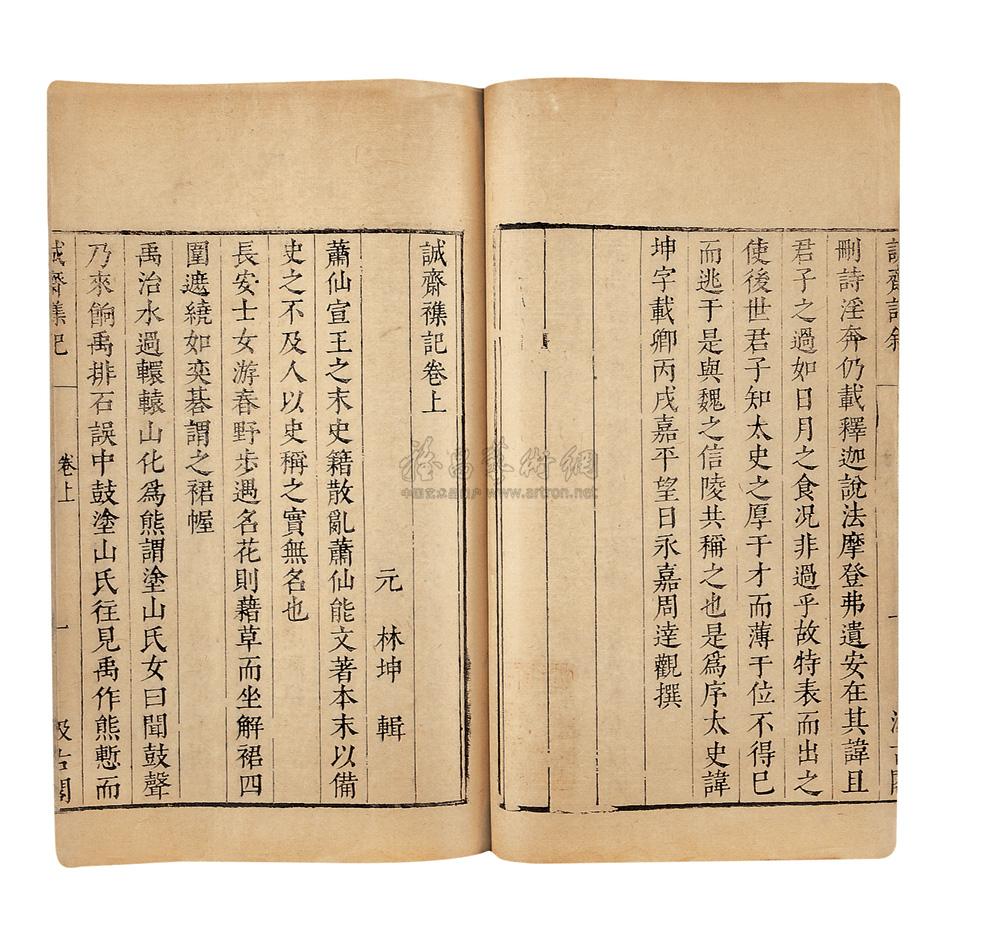 刪詩淫奔仍載釋迦說法摩登弗遺安在其諱且
君子之過如日月之食况非過乎故特表而出之
使後世君子知太史之厚于才而薄于位不得已
而逃于是與魏之信陵共稱之也是爲序太史諱
坤字載卿丙戌嘉平望日永嘉周達觀撰
誠齋襍記卷上
元 林坤 輯
蕭仙宣王之末史籍散亂蕭仙能文著本末以備
史之不及人以史稱之實無名也
長安士女游春野步遇名花則藉草而坐解裙四
圍遮繞如奕碁謂之裙幄
禹治水過轘轅山化爲熊謂塗山氏女曰聞鼓聲
乃來餉禹排石誤中鼓塗山氏往見禹作熊慙而
誠齋襍記 卷上 一 汲古閣
www.artron.net